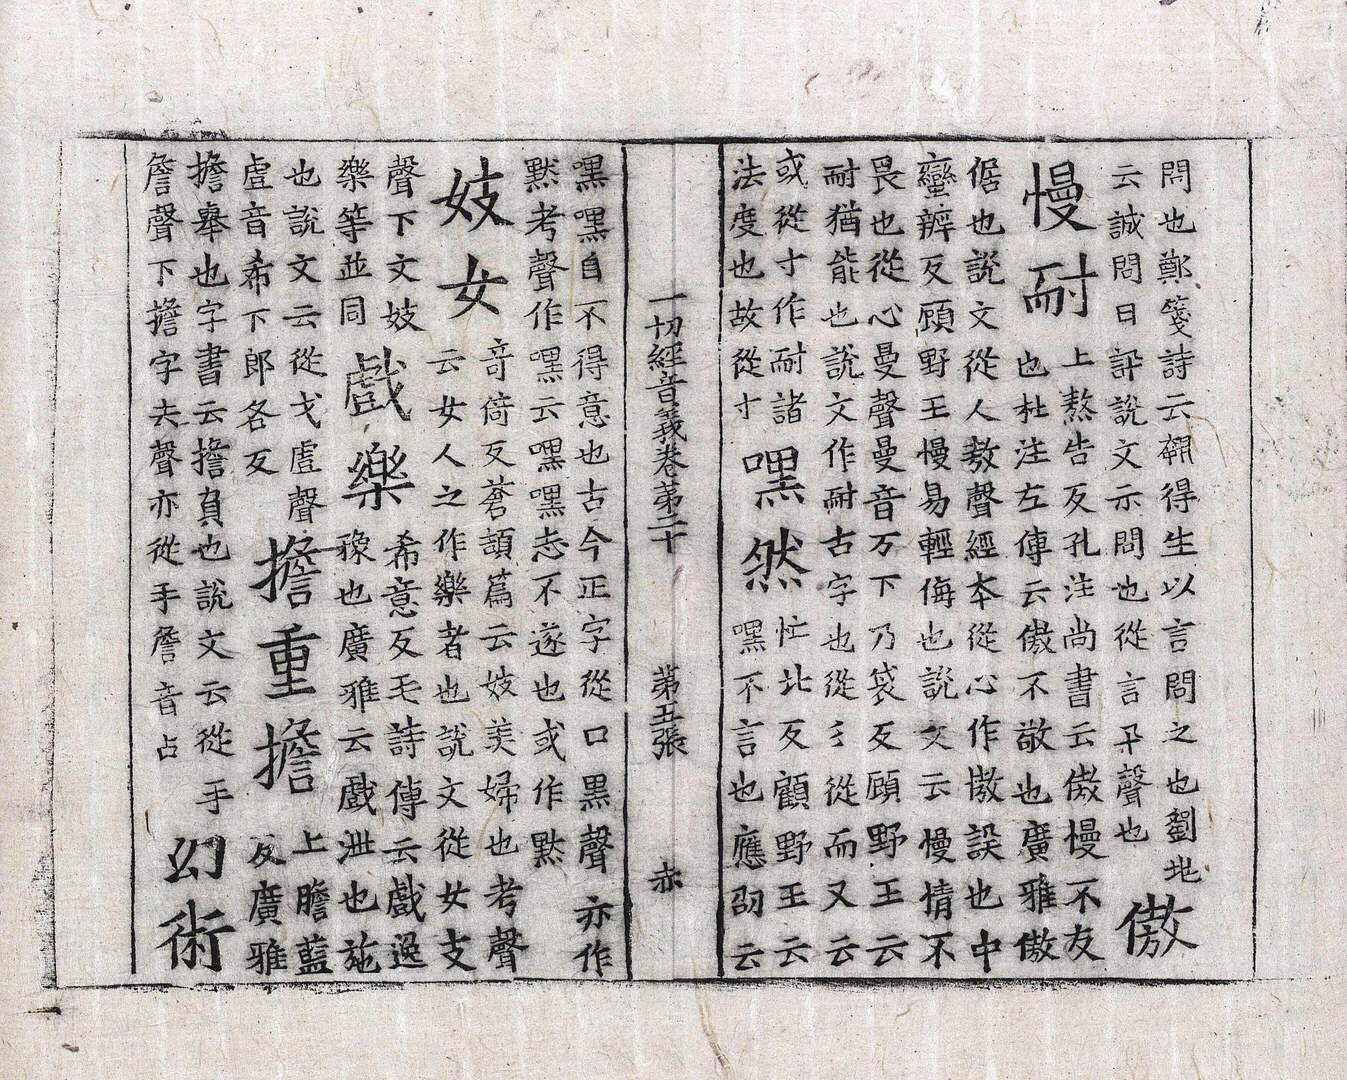 問也鄭箋詩云得生以言問之也劉地
云誠問曰訊說文示問也從言卂聲也
傲
慢耐
上熬告反孔注尚書云傲慢不友
也杜注左傳云傲不敬也廣雅傲
倨也說文從人敖聲經本從心作慠誤也中
蠻辨反顧野王慢易輕侮也說文云慢情不
畏也從心曼聲曼音万下乃袋反顧野王云
耐猶能也說文作耐古字也從彡從而又云
或從寸作耐諸
法度也故從寸
嘿然
忙北反顧野王云
嘿不言也應劭云
一切經音義卷第二十 第五張 赤
嘿嘿自不得意也古今正字從口黒聲亦作
默考聲作嘿云嘿嘿志不遂也或作默
妓女
奇倚反蒼頡篇云妓美婦也考聲
云女人之作樂者也說文從女支
聲下文妓
樂等並同
戲樂
希意反毛詩傳云戲逸
豫也廣雅云戲泄也施
也說文云從戈䖒聲
䖒音希下郎各反
擔重擔
上膽藍
反廣雅
擔舉也字書云擔負也說文云從手
詹聲下擔字去聲亦從手詹音占
幻術